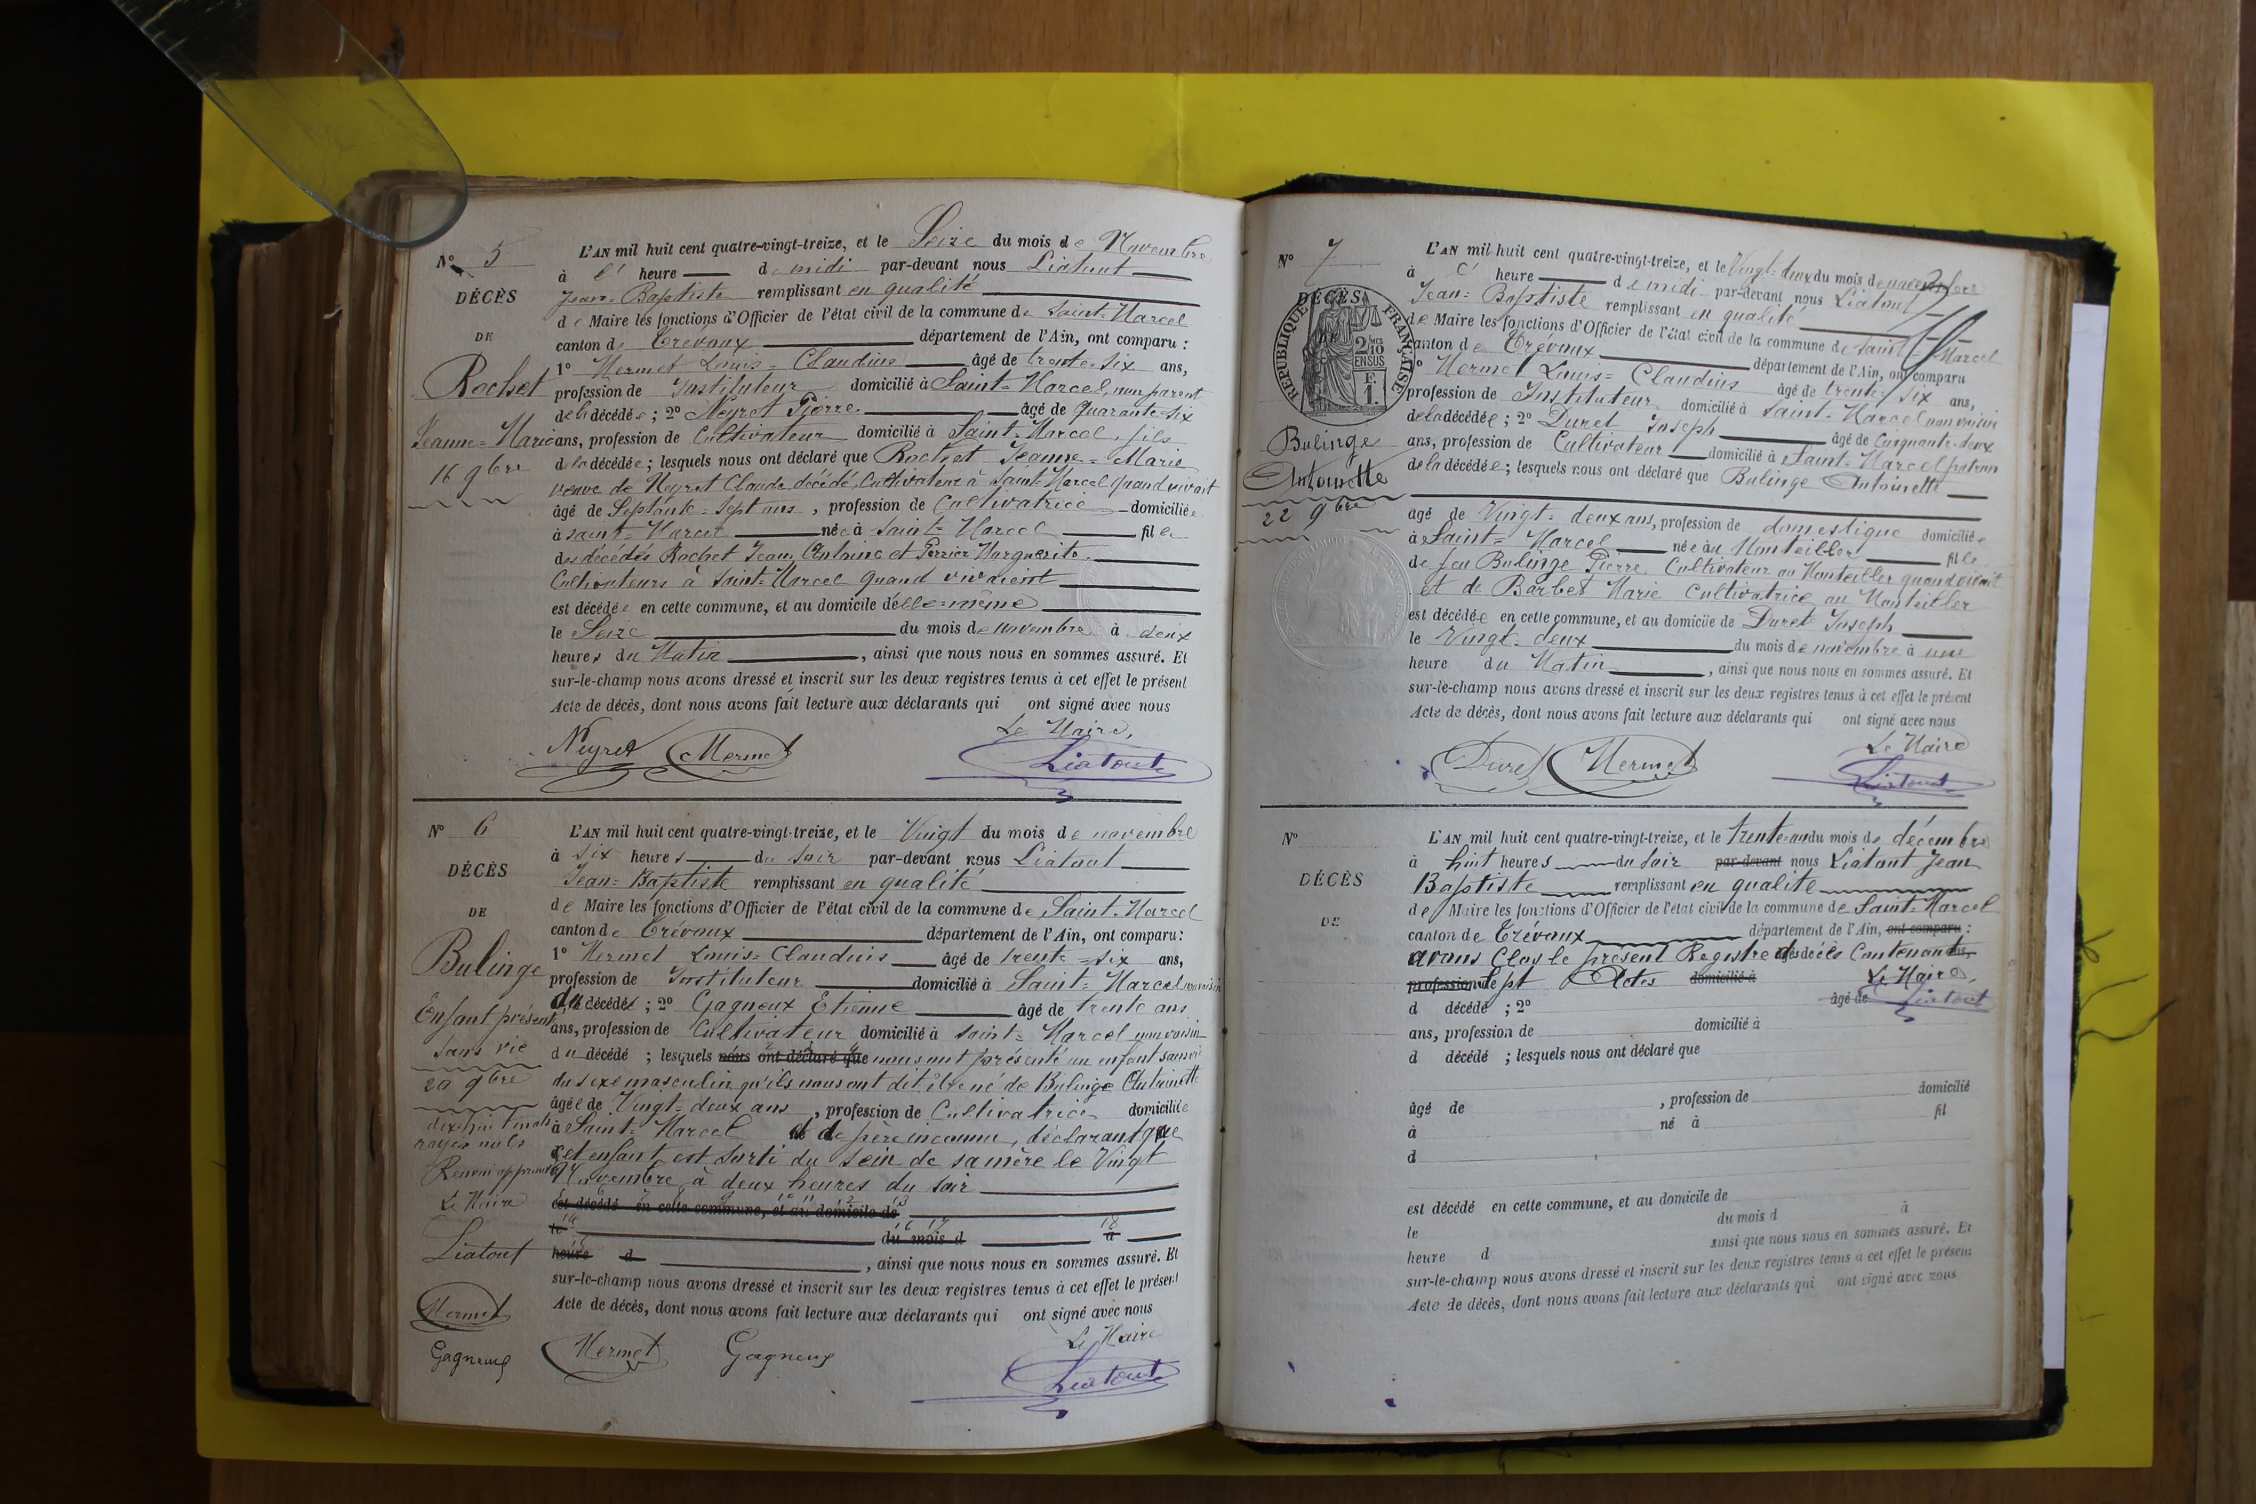 N° 5
DÉCÈS
DE
Rochet
Jeanne=Marie
16 9bre
L'AN mil huit cent quatre-vingt-treize, et le Seize du mois de Novembre
à heure de midi par-devant nous Liatout
Jean=Baptiste remplissant en qualité
de Maire les fonctions d'Officier de l'état civil de la commune de Saint=Marcel
canton de Trévoux département de l'Ain, ont comparu :
1° Mermet Louis=Claudius âgé de trente-six ans,
profession de Instituteur domicilié à Saint=Marcel, non parent
de la décédée ; 2° Neyret Pierre âgé de quarante-six
ans, profession de Cultivateur domicilié à Saint=Marcel, fils
de la décédée ; lesquels nous ont déclaré que Rochet Jeanne=Marie
veuve de Neyret Claude décédé, Cultivateur à Saint=Marcel quand vivait
âgé de Septante=sept ans, profession de Cultivatrice domiciliée
à Saint=Marcel née à Saint=Marcel fille
des décédés Rochet Jean, Antoine et Perrier Marguerite
Cultivateurs à Saint=Marcel quand vivaient
est décédée en cette commune, et au domicile d'elle=même
le Seize du mois de novembre à deux
heures du Matin, ainsi que nous nous en sommes assuré. Et
sur-le-champ nous avons dressé et inscrit sur les deux registres tenus à cet effet le présent
Acte de décès, dont nous avons fait lecture aux déclarants qui ont signé avec nous
Le Maire,
Neyret Mermet Liatout
N° 6
DÉCÈS
DE
Bulinge
Enfant présenté
sans vie
20 9bre
dix huit mots
rayés nuls
Renvoi approuvé
Le Maire
Liatout
Mermet
Gagneux
L'AN mil huit cent quatre-vingt-treize, et le Vingt du mois de novembre
à six heures du soir par-devant nous Liatout
Jean=Baptiste remplissant en qualité
de Maire les fonctions d'Officier de l'état civil de la commune de Saint-Marcel
canton de Trévoux département de l'Ain, ont comparu :
1° Mermet Louis=Claudius âgé de trente=six ans,
profession de Instituteur domicilié à Saint=Marcel non voisin
du décédé ; 2° Gagneux Etienne âgé de trente ans
ans, profession de Cultivateur domicilié à Saint=Marcel non voisin
du décédé ; lesquels nous ont déclaré que nous ont présenté un enfant sans vie
du sexe masculin qu'ils nous ont dit être né de Bulinge Antoinette
âgée de Vingt=deux ans, profession de Cultivatrice domiciliée
à Saint=Marcel et de père inconnu, déclarant que
cet enfant est sorti du sein de sa mère le Vingt
Novembre à deux heures du soir
est décédé en cette commune, et au domicile de
le du mois d à
heure d, ainsi que nous nous en sommes assuré. Et
sur-le-champ nous avons dressé et inscrit sur les deux registres tenus à cet effet le présent
Acte de décès, dont nous avons fait lecture aux déclarants qui ont signé avec nous
Le Maire
Mermet Gagneux Liatout
N° 7
DÉCÈS
DE
RÉPUBLIQUE FRANÇAISE
2/10 EN SUS
F. 1.
Bulinge
Antoinette
22 9bre
L'AN mil huit cent quatre-vingt-treize, et le Vingt=deux du mois de novembre
à heure de midi par-devant nous Liatout
Jean=Baptiste remplissant en qualité
de Maire les fonctions d'Officier de l'état civil de la commune de Saint=Marcel
canton de Trévoux département de l'Ain, ont comparu
1° Mermet Louis=Claudius âgé de trente-six ans,
profession de Instituteur domicilié à Saint=Marcel non voisin
de la décédée ; 2° Duret Joseph âgé de Cinquante-deux
ans, profession de Cultivateur domicilié à Saint=Marcel patron
de la décédée ; lesquels nous ont déclaré que Bulinge Antoinette
âgé de Vingt=deux ans, profession de domestique domiciliée
à Saint=Marcel née au Montellier fille
de feu Bulinge Pierre Cultivateur au Montellier quand vivait
et de Barbet Marie Cultivatrice au Montellier
est décédée en cette commune, et au domicile de Duret Joseph
le Vingt-deux du mois de novembre à une
heure du Matin, ainsi que nous nous en sommes assuré. Et
sur-le-champ nous avons dressé et inscrit sur les deux registres tenus à cet effet le présent
Acte de décès, dont nous avons fait lecture aux déclarants qui ont signé avec nous
Le Maire
Duret Mermet Liatout
N°
DÉCÈS
DE
L'AN mil huit cent quatre-vingt-treize, et le trente-un du mois de décembre
à huit heures du soir par-devant nous Liatout Jean
Baptiste remplissant en qualité
de Maire les fonctions d'Officier de l'état civil de la commune de Saint=Marcel
canton de Trévoux département de l'Ain, ont comparu :
avons Clos le présent Registre des décès Contenant
profession sept Actes domicilié à Le Maire,
d décédé ; 2° âgé de Liatout
ans, profession de domicilié à
d décédé ; lesquels nous ont déclaré que
âgé de, profession de domicilié
à né à fil
d
est décédé en cette commune, et au domicile de
le du mois d à
heure d ainsi que nous nous en sommes assuré. Et
sur-le-champ nous avons dressé et inscrit sur les deux registres tenus à cet effet le présent
Acte de décès, dont nous avons fait lecture aux déclarants qui ont signé avec nous